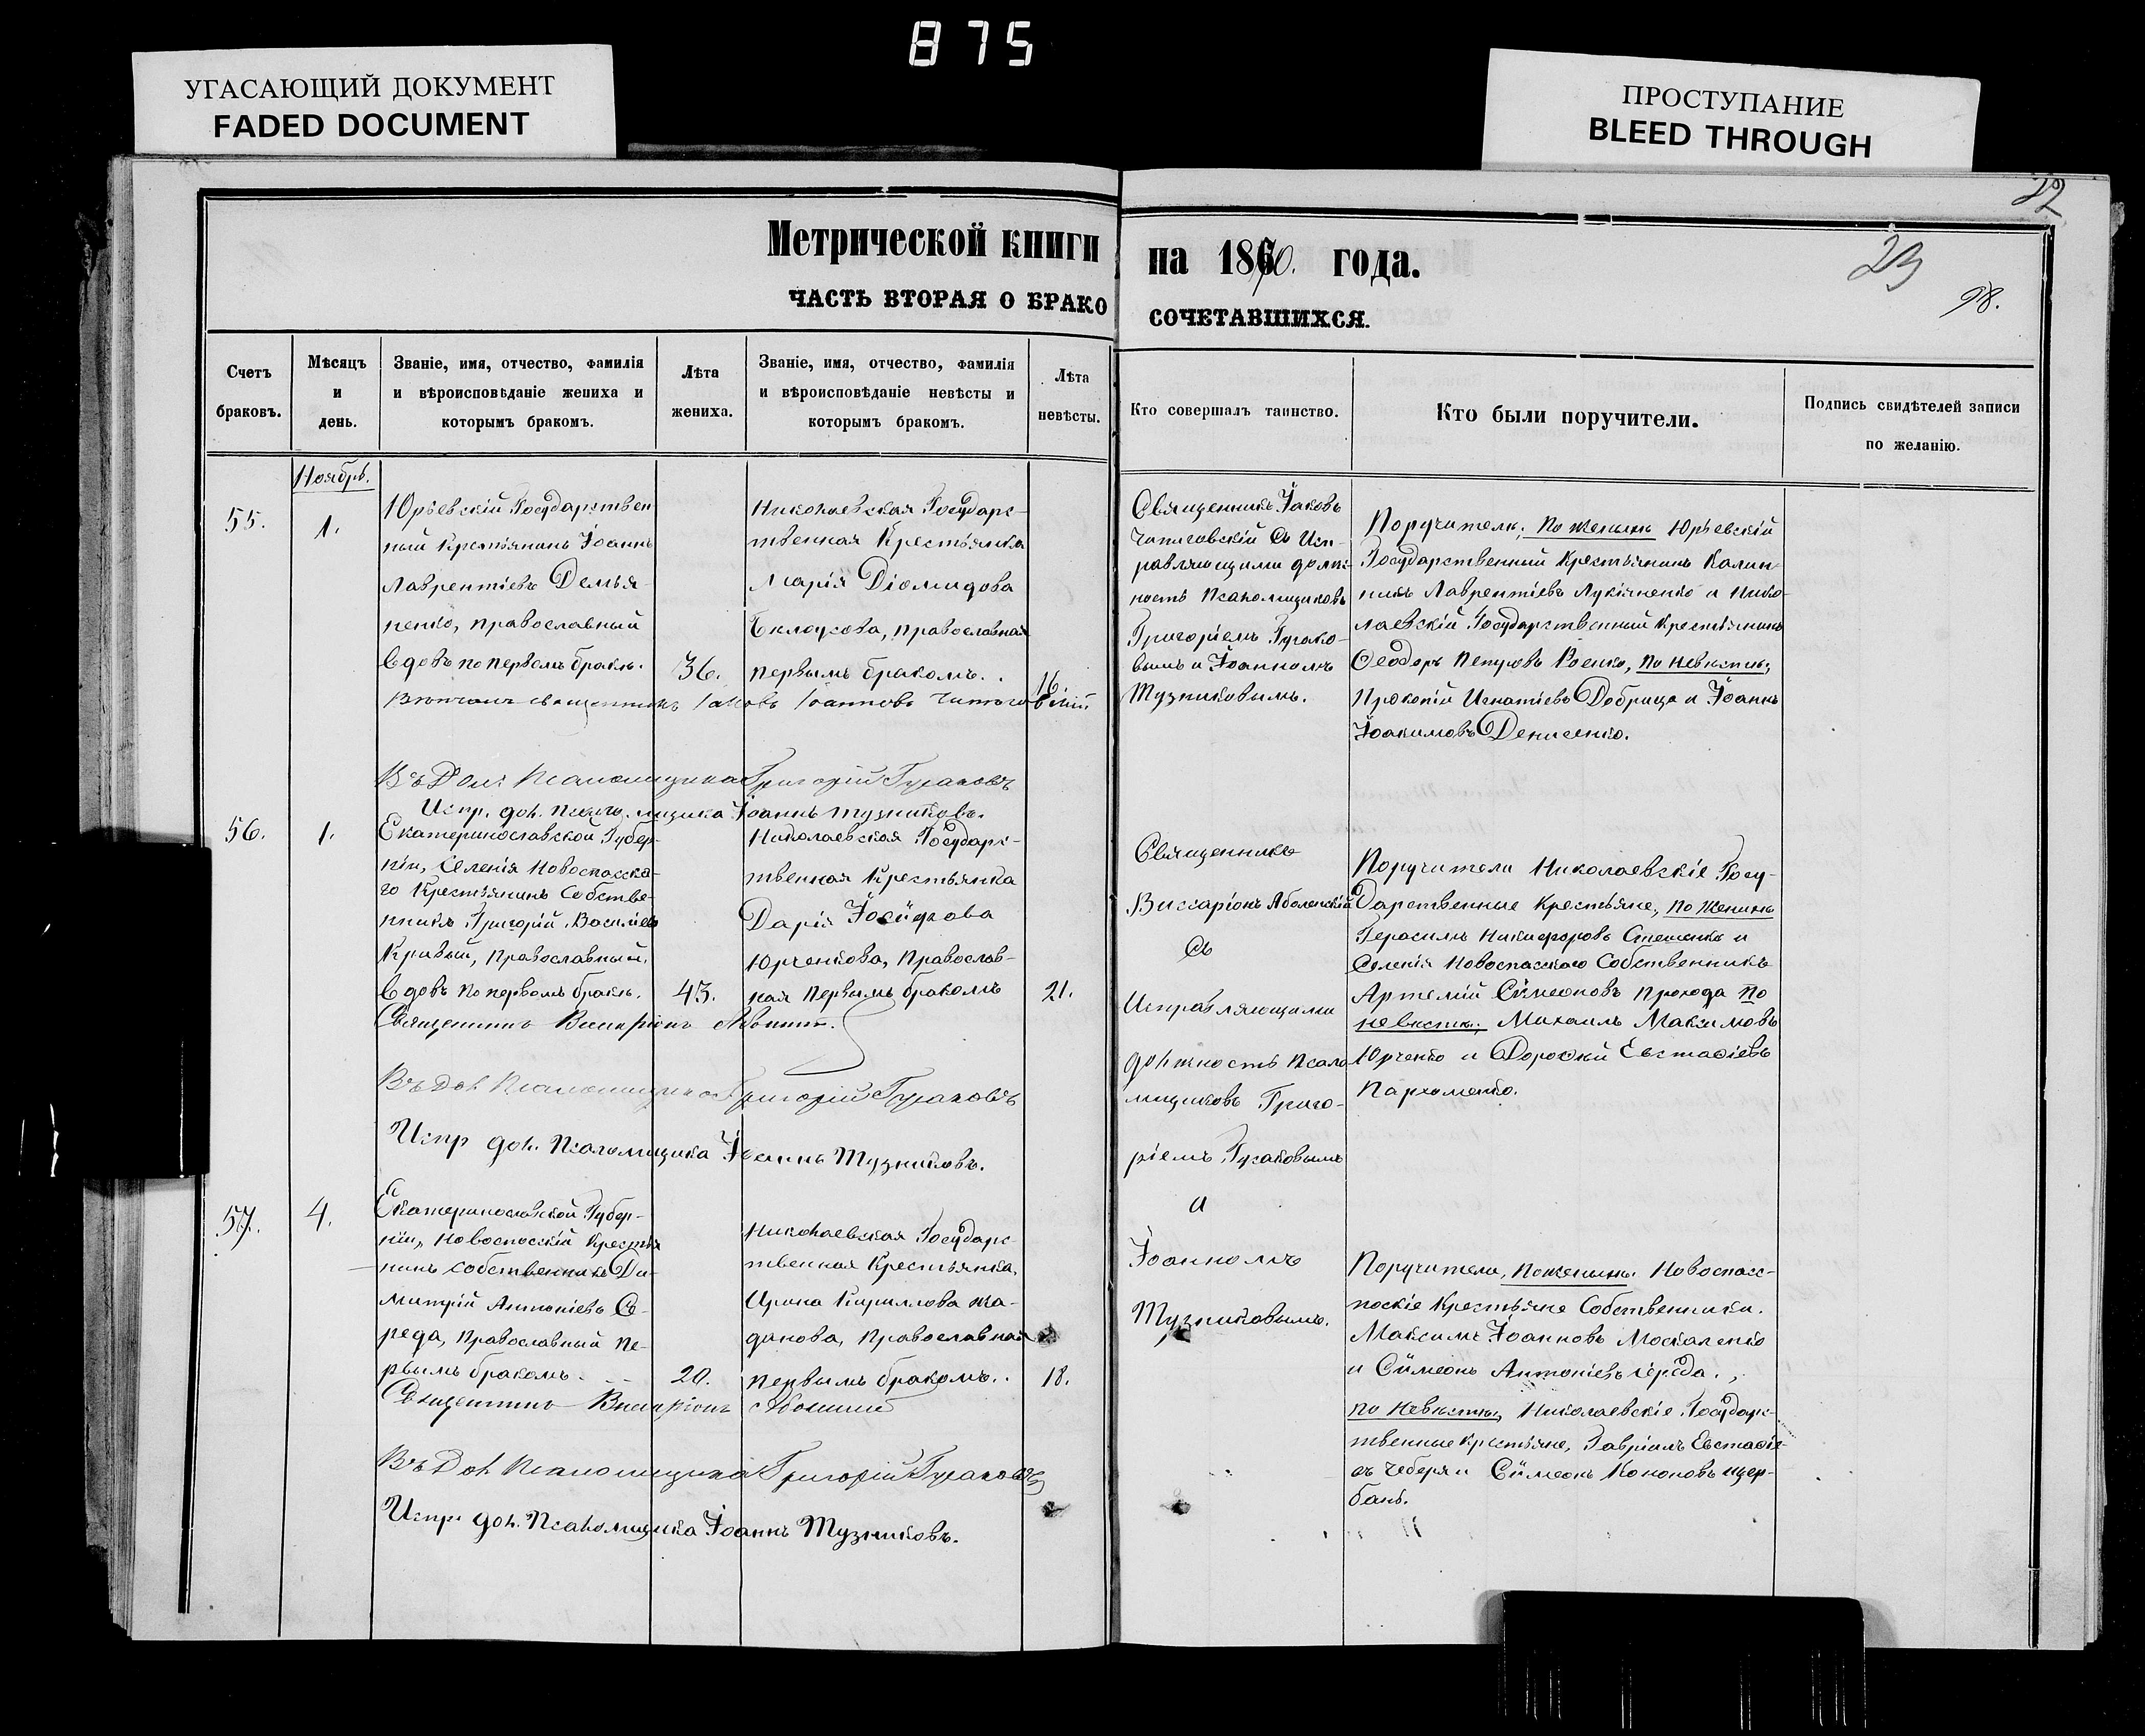 875
УГАСАЮЩИЙ ДОКУМЕНТ
FADED DOCUMENT
ПРОСТУПАНИЕ
BLEED THROUGH
22
23
98.
Метрической книги на 1870. года.
ЧАСТЬ ВТОРАЯ О БРАКОСОЧЕТАВШИХСЯ.
Счетъ
браковъ.
Мѣсяцъ
и
день.
Званіе, имя, отчество, фамилія
и вѣроисповѣданіе жениха и
которымъ бракомъ.
Лѣта
жениха.
Званіе, имя, отчество, фамилія
и вѣроисповѣданіе невѣсты и
которымъ бракомъ.
Лѣта
невѣсты.
Кто совершалъ таинство.
Кто были поручители.
Подпись свидѣтелей записи
по желанію.
Ноябрь.
55.
1.
Юрьевскій Государствен
ный Крестьянинъ Іоаннъ
Лаврентіевъ Демья-
ненко, православный
вдовъ по первомъ бракѣ.
36.
Николаевская Государс-
твенная Крестьянка
Марія Діомидова
Бѣлоусова, православная
первымъ бракомъ.
16.
Священникъ Іаковъ
съ Исп-
равляющими долж-
ность Псаломщиковъ
Григоріемъ Гусако-
вымъ и Іоанномъ
Тузниковымъ.
Поручители: по женихѣ Юрьевскій
Государственный Крестьянинъ Калин-
никъ Лаврентіевъ Лукіяненко и Нико-
лаевскій Государственный Крестьянинъ
Ѳеодоръ Петровъ Коенко, по невѣстѣ;
Прокопій Игнатіевъ Добрица и Іоаннъ
Іоакимовъ Денисенко.
Вѣнчалъ священникъ Іаковъ Іоанновъ
Въ Дол: Псаломщика Григорій Гусаковъ
Испр. дол. Псаломщика Іоаннъ Тузниковъ.
56.
1.
Екатеринославской Губер-
ніи, Селенія Новоспасска-
го Крестьянинъ Собстве-
нникъ Григорій Василіевъ
Кривый, Православный,
вдовъ по первомъ бракѣ.
43.
Николаевская Государс-
твенная Крестьянка
Дарія Іосифова
Юрченкова, Православ-
ная первымъ бракомъ
21.
Священникъ
Виссаріонъ Аболенскій
съ
Исправляющими
должность Псало-
мщиковъ Григо-
ріемъ Гусаковымъ
и
Іоанномъ
Тузниковымъ.
Поручители Николаевскіе Госу-
дарственные Крестьяне, по женихѣ
Герасимъ Никифоровъ Стешенко и
Селенія Новоспасскаго Собственникъ
Артемій Сѵмеоновъ Прохода по
невѣстѣ; Михаилъ Максимовъ
Юрченко и Дороѳей Евстаѳіевъ
Пархоменко.
Священникъ Виссаріонъ
Въ Дол. Псаломщика Григорій Гусаковъ
Испр дол. Псаломщика Іоаннъ Тузниковъ.
57.
4.
Екатеринославской Губер-
ніи, Новоспасскій Крестья
нинъ собственникъ Ди-
митрій Антоніевъ Се-
реда, Православный пе-
рвымъ бракомъ.
20.
Николаевская Государс
твенная Крестьянка,
Ирина Кириллова Жа-
данова, Православная
первымъ бракомъ.
18.
Поручители, по женихѣ: Новоспасс-
кіе Крестьяне Собственники.
Максимъ Іоанновъ Москаленко
и Сѵмеонъ Антоніевъ Середа.,
по невѣстѣ, Николаевскіе Государс-
твенные крестьяне, Гавріилъ Евстаѳіе-
въ Чеберя и Сѵмеонъ Кононовъ Щер-
бань.
Священникъ Виссаріонъ
Въ Дол Псаломщика Григорій Гусаковъ
Испр. дол. Псаломщика Іоаннъ Тузниковъ.